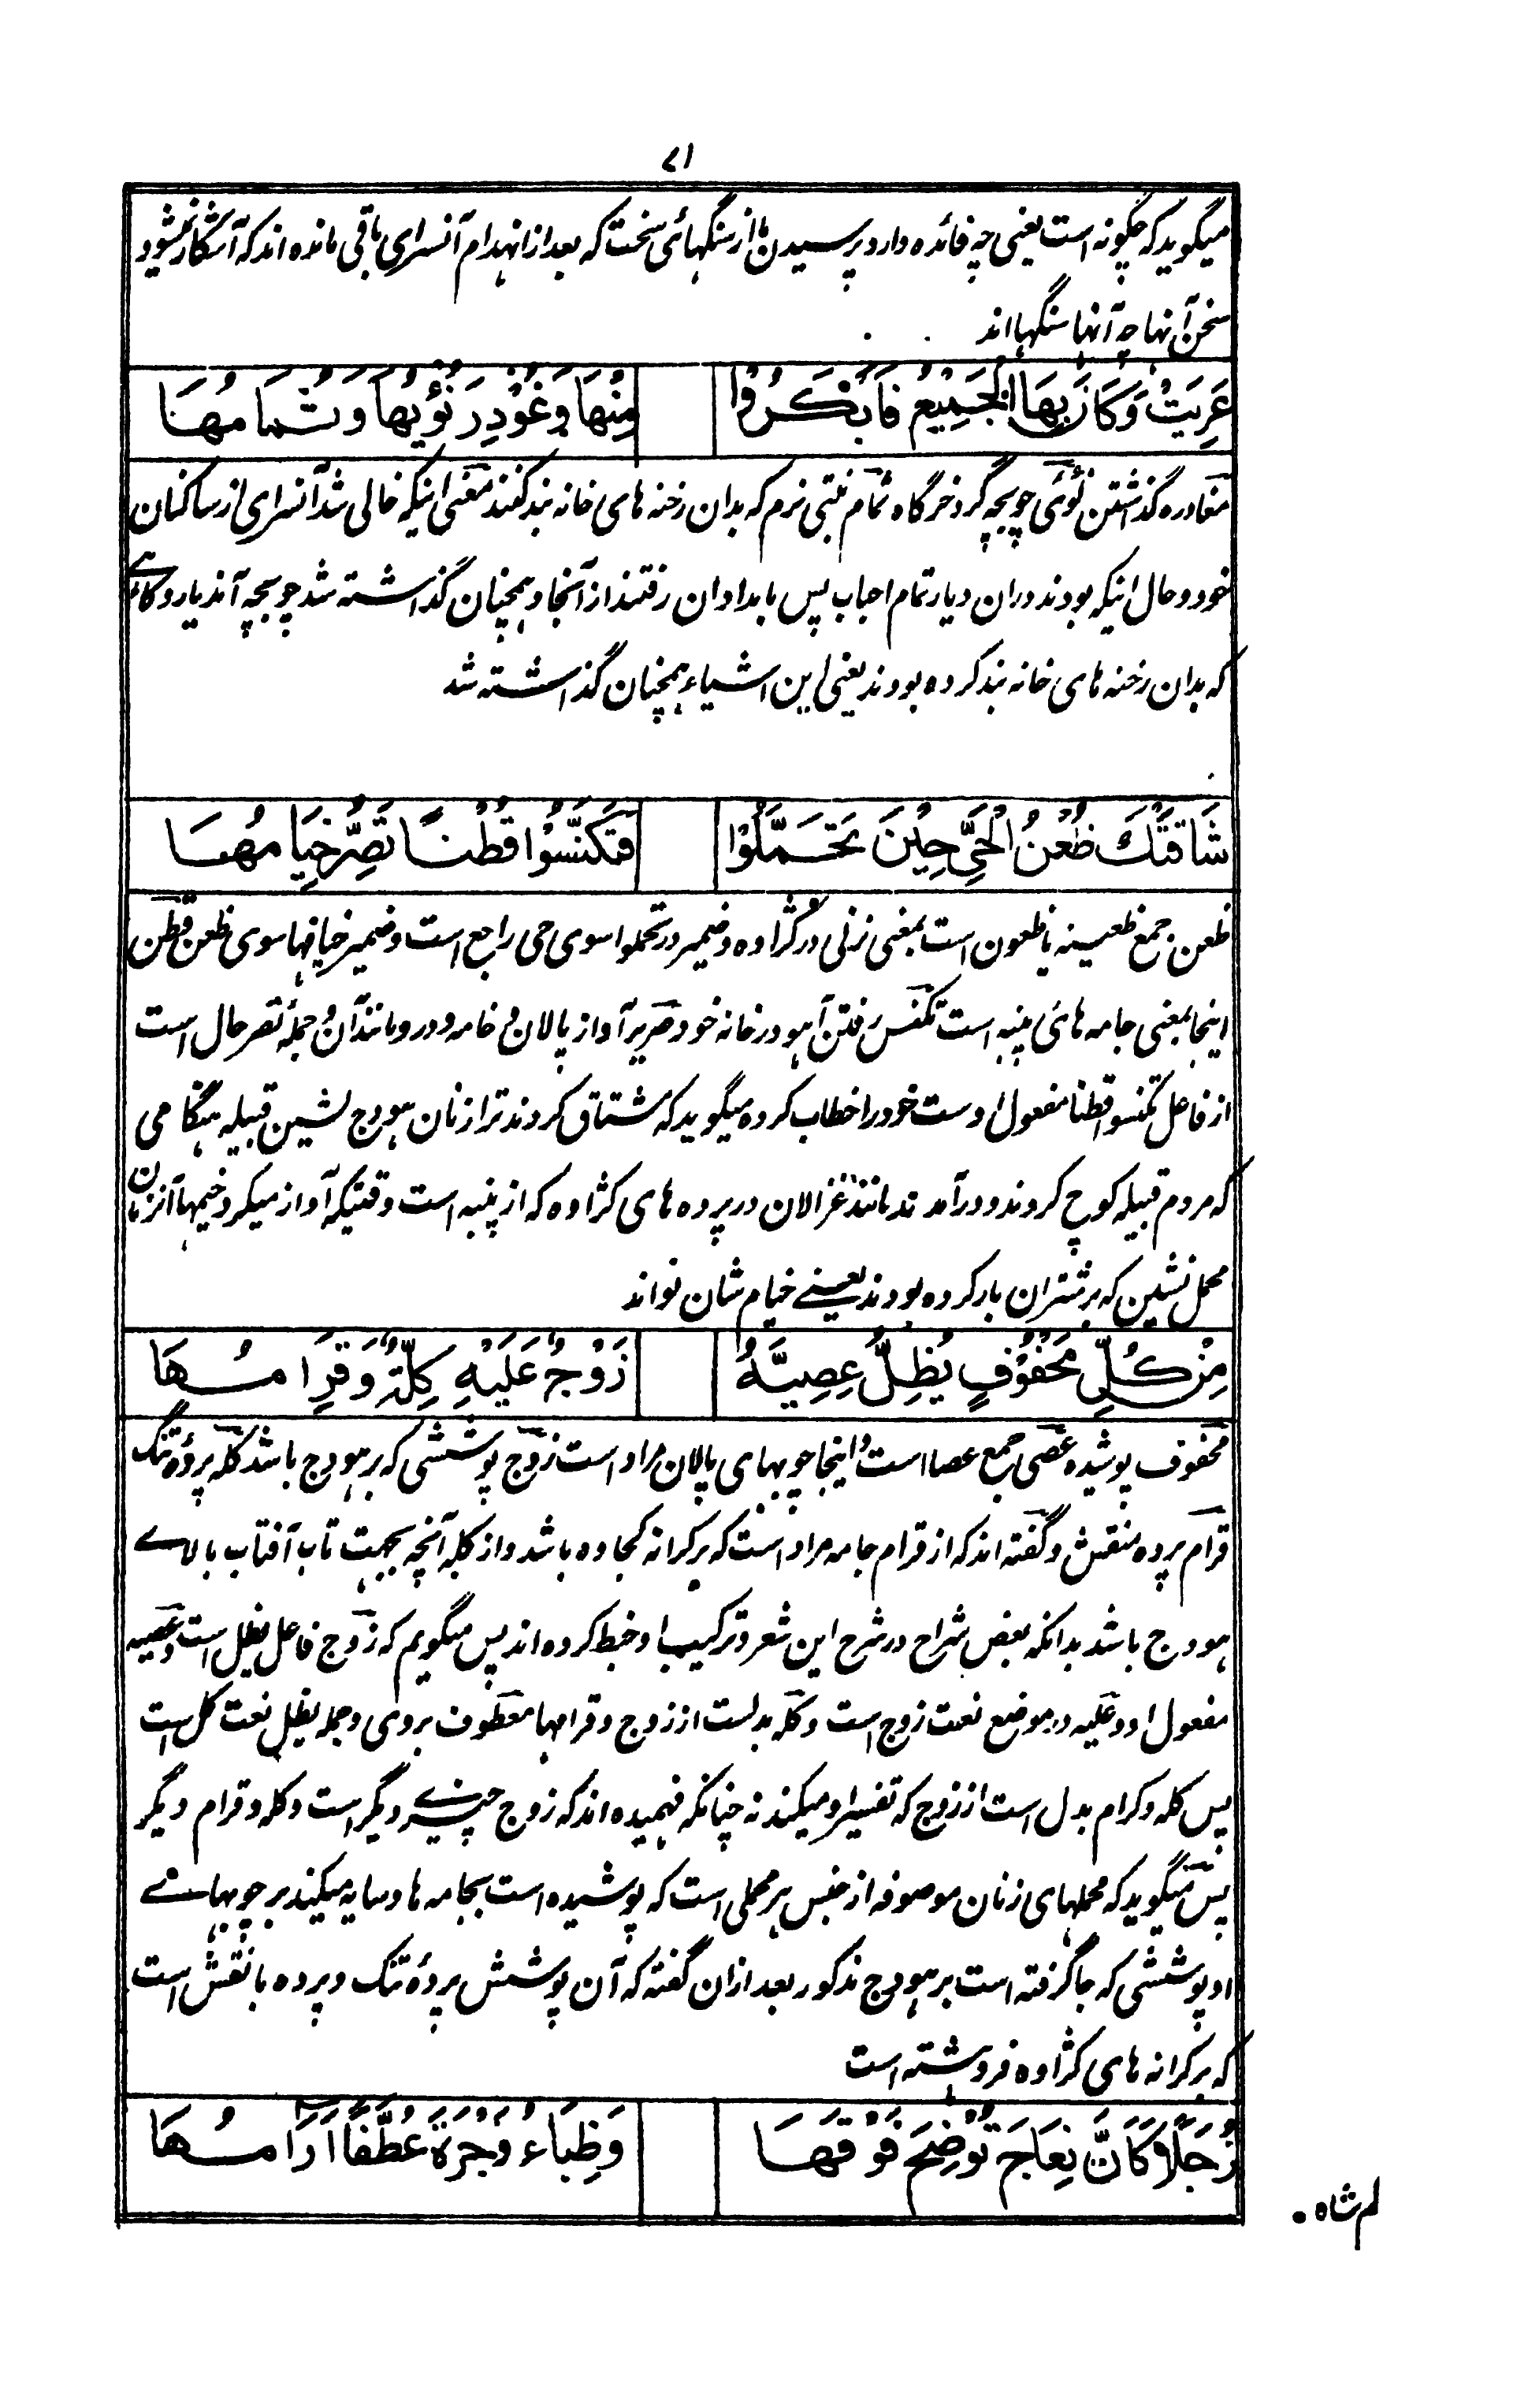 ۷۱
میگوید که چگونه است یعنی چه فائده دارد پرسیدن ما از سنگهائی سخت که بعد از انهدام آنسرای باقی مانده اند که آشکار نمیشود
سخن آنها چه آنها سنگها اند
عَرِيَتْ وَكَانَ بِهَا الْجَمِيْعُ فَابْكَرُوْا مِنْهَا وَغُوْدِرَ نُؤْيُهَا وَثُمَامُهَا
مغادره گذاشتن نؤی جویچه گرد خرگاه ثمام نبتی نرم که بدان رخنه های خانه بند کنند معنی اینکه خالی شد آنسرای از ساکنان
خود و حال اینکه بودند دران دیار تمام احباب پس بامدادان رفتند از آنجا و همچنان گذاشته شد جویچه آندیار و کاه
که بدان رخنه های خانه بند کرده بودند یعنی این اشیاء همچنان گذاشته شد
شَاقَتْكَ ظُعْنُ الْحَيِّ حِيْنَ تَحَمَّلُوْا فَتَكَنَّسُوْا قُطْنًا تَصِرُّ خِيَامُهَا
ظعن جمع ظعینه یا ظعون است بمعنی زنی در کژاوه و ضمیر در تحملوا سوی حی راجع است و ضمیر خیامها سوی ظعن قطن
اینجا بمعنی جامه های پنبه است تکنس رفتن آهو در خانه خود صریر آواز پالان و خامه و در و مانند آن و جمله تصر حال است
از فاعل تکنسوا قطنا مفعول اوست خود را خطاب کرده میگوید که مشتاق کردند ترا زنان هودج نشین قبیله هنگامی
که مردم قبیله کوچ کردند و درآمدند مانند غزالان در پرده های کژاوه که از پنبه است وقتیکه آواز میکرد خیمها آنزنان
محمل نشین که بر شتران بار کرده بودند یعنے خیام شان نو اند
مِنْ كُلِّ مَحْفُوْفٍ يُظِلُّ عِصِيَّهُ زَوْجٌ عَلَيْهِ كِلَّةٌ وَقِرَامُهَا
محفوف پوشیده عصی جمع عصا است و اینجا چوبهای پالان مراد است زوج پوششی که بر هودج باشد کله پردۀ تنک
قرام پرده منقش و گفته اند که از قرام جامه مراد است که بر کرانه کجاوه باشد و از کله آنچه بجهت تاب آفتاب بالاے
هودج باشد بدانکه بعض شراح در شرح این شعر و ترکیب او خبط کرده اند پس میگویم که زوج فاعل یظل است و عصیه
مفعول او و علیه در موضع نعت زوج است و کله بدلست از زوج و قرامها معطوف بروی و جمله یظل نعت کل است
پس کله و کرام بدل است از زوج که تفسیر او میکند نه چنانکه فهمیده اند که زوج چیزے دیگر است و کله و قرام دیگر
پس میگوید که محملهای زنان موصوفه از جنس هر محملی است که پوشیده است بجامه ها و سایه میکند بر چوبهاے
او پوششی که جا گرفته است بر هودج مذکور بعد ازان گفته که آن پوشش پردۀ تنک و پرده با نقش است
که بر کرانه های کژاوه فروهشته است
زُجَلًا كَاَنَّ نِعَاجَ تُوْضِحَ فَوْقَهَا وَظِبَاءَ وَجْرَةَ عُطَّفًا اٰرَامُهَا